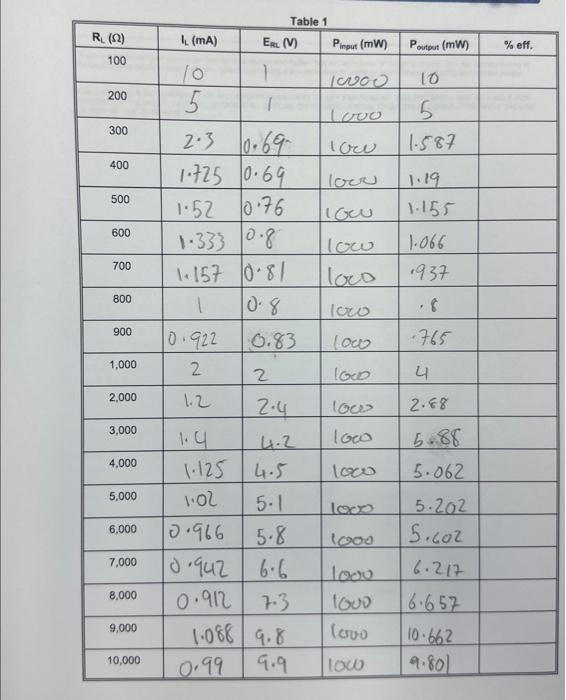 Table 1
RL (Ω) IL (mA) ERL (V) Pinput (mW) Poutput (mW) % eff.
100 10 1 10000 10
200 5 1 1000 5
300 2.3 0.69 1000 1.587
400 1.725 0.69 1000 1.19
500 1.52 0.76 1000 1.155
600 1.333 0.8 1000 1.066
700 1.157 0.81 1000 .937
800 1 0.8 1000 .8
900 0.922 0.83 1000 .765
1,000 2 2 1000 4
2,000 1.2 2.4 1000 2.88
3,000 1.4 4.2 1000 5.88
4,000 1.125 4.5 1000 5.062
5,000 1.02 5.1 1000 5.202
6,000 0.966 5.8 1000 5.602
7,000 0.942 6.6 1000 6.217
8,000 0.912 7.3 1000 6.657
9,000 1.088 9.8 1000 10.662
10,000 0.99 9.9 1000 9.801